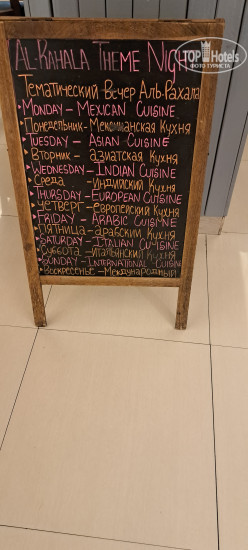 AL-RAHALA THEME Nig
Top Hotels
ФОТО ТУРИСТА
Тематический Вечер Аль-Рахала
MONDAY – MEXICAN CUISINE
Понедельник – Мексиканская Кухня
TUESDAY – ASIAN CUISINE
Вторник – азиатская Кухня
WEDNESDAY – INDIAN CUISINE
Среда – Индийский Кухня
THURSDAY – EUROPEAN CUISINE
Четверг – европейский Кухня
FRIDAY – ARABIC CUISINE
Пятница – арабский Кухня
SATURDAY – ITALIAN CUISINE
Суббота – Итальянский Кухня
SUNDAY – INTERNATIONAL CUISINE
Воскресенье – Международный